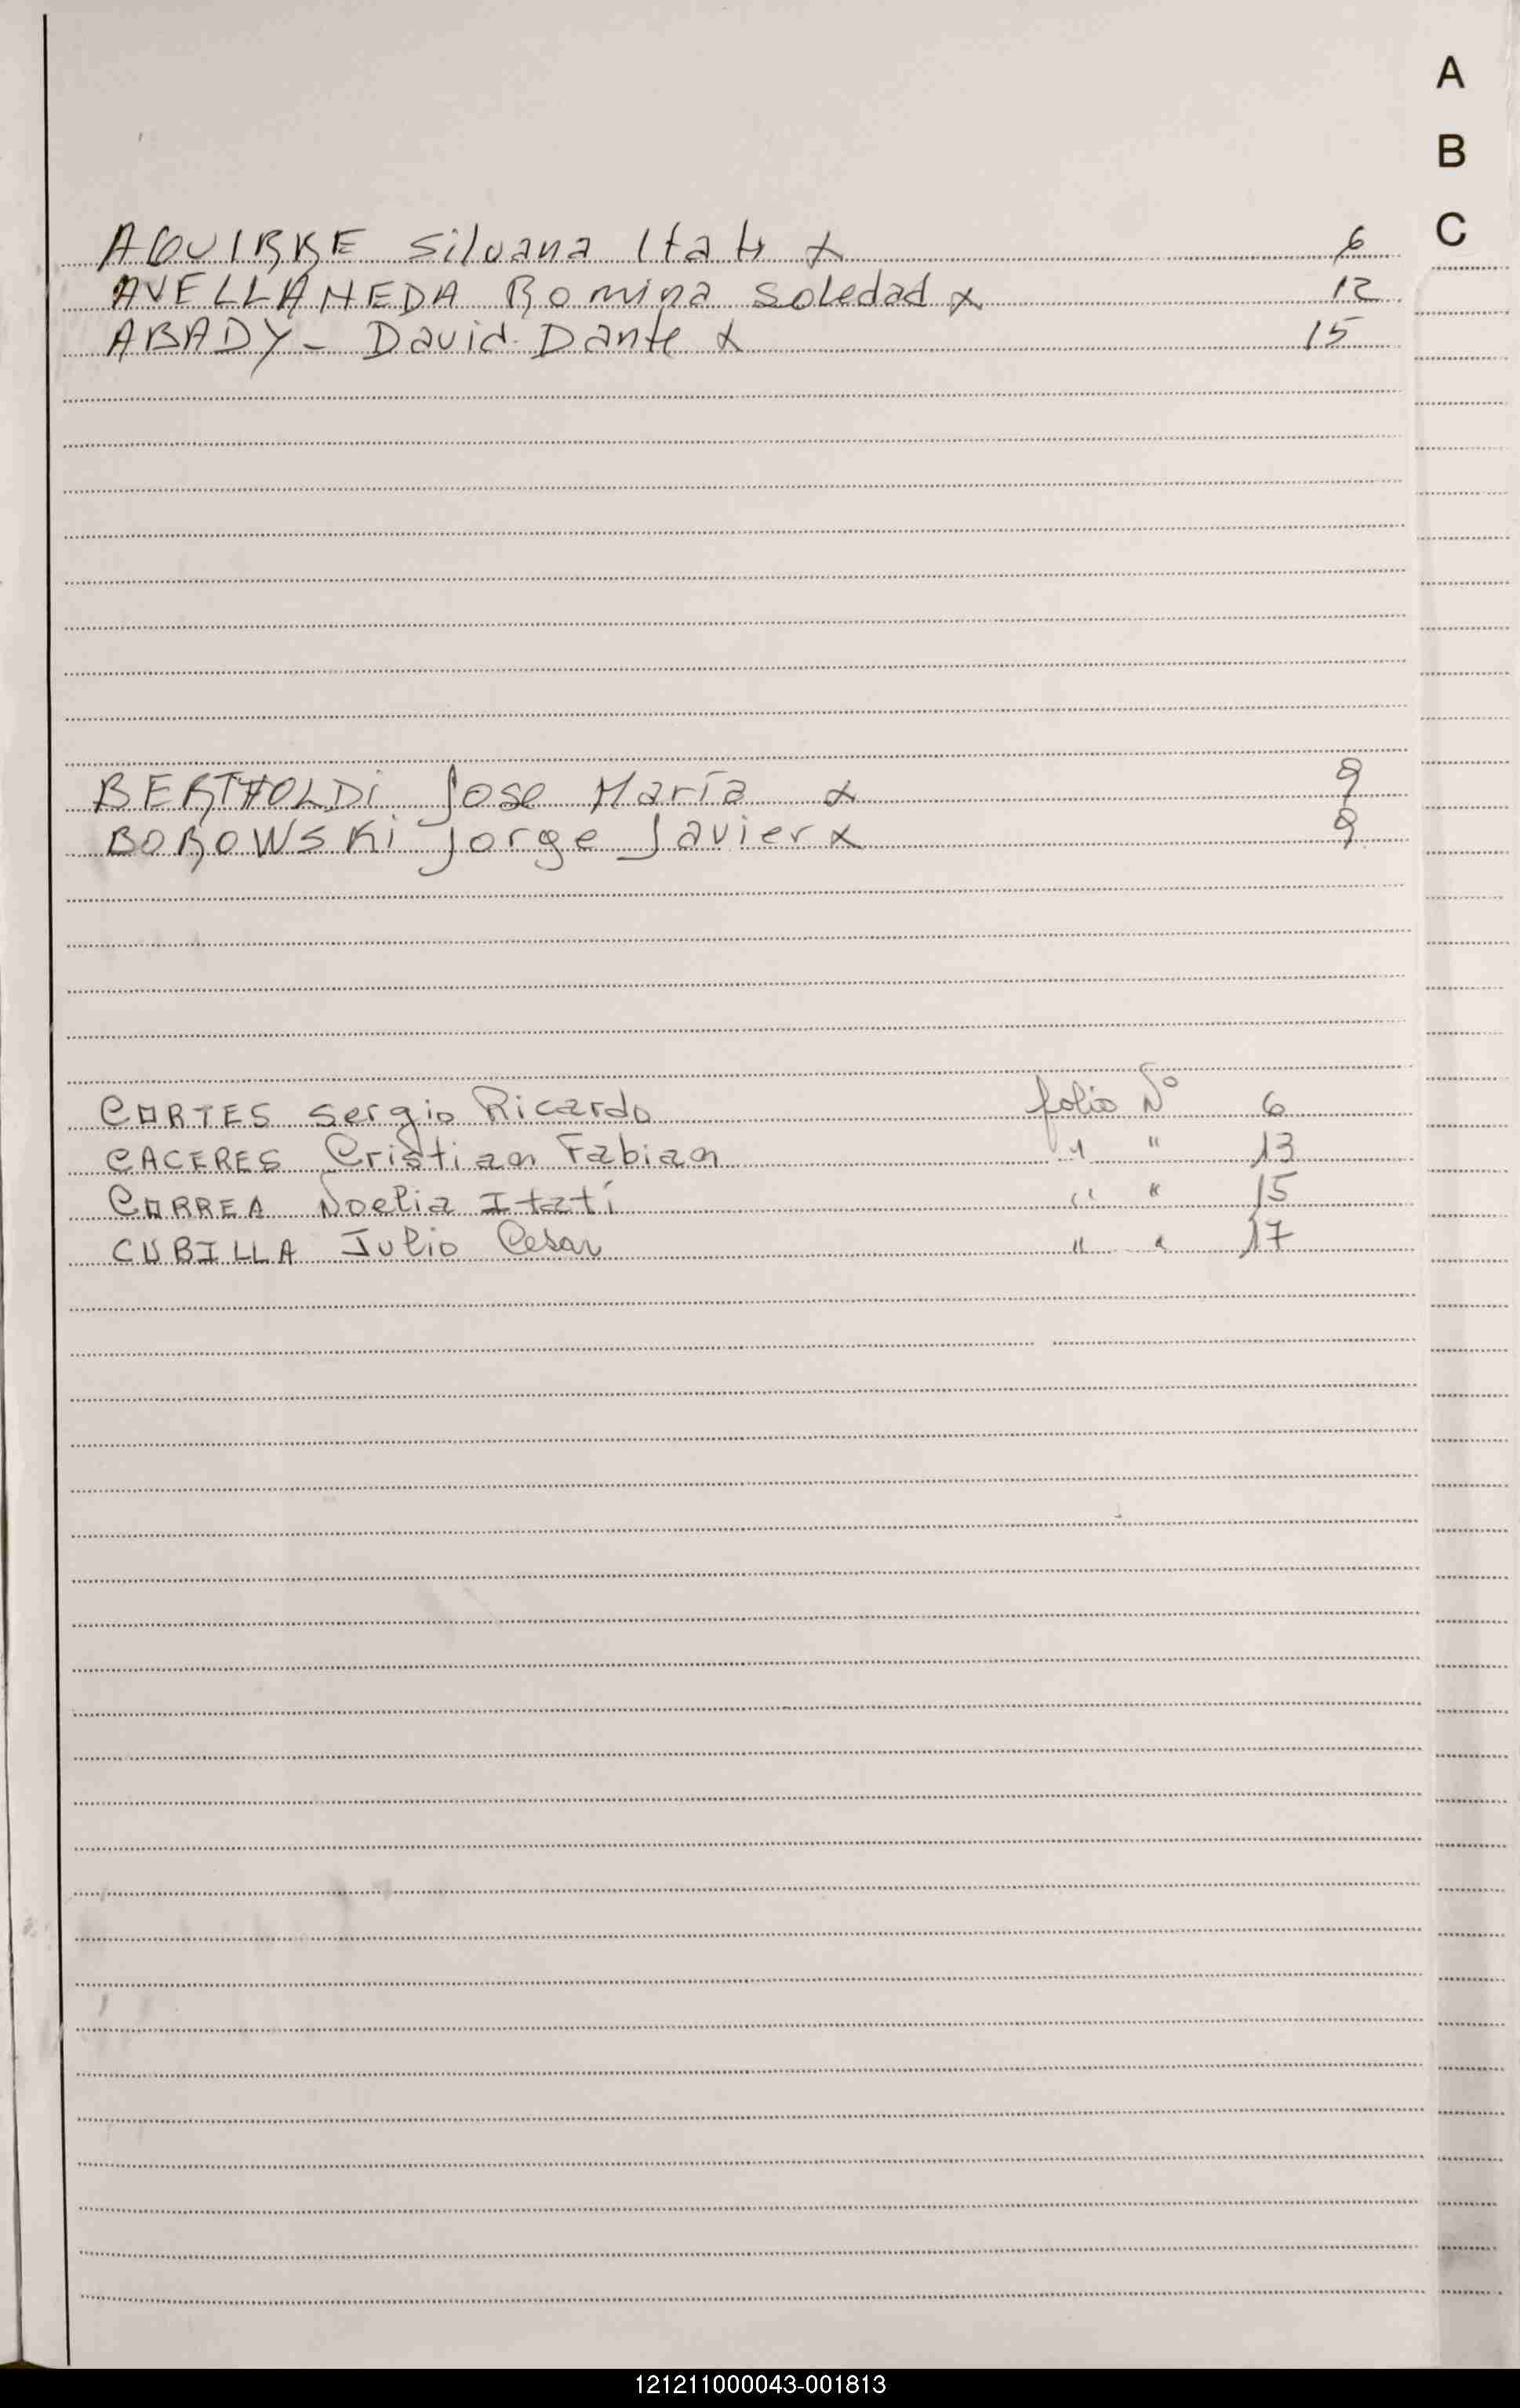 A
B
C
AGUIRRE Silvana Itati x 6
AVELLANEDA Romina Soledad x 12
ABADY - David Dante x 15
BERTHOLDi Jose María x 9
BOROWSKi Jorge Javier x 9
CORTES Sergio Ricardo folio Nº 6
CACERES Cristian Fabian " " 13
CORREA Noelia Itatí " " 15
CUBILLA Julio Cesar " " 17
121211000043-001813